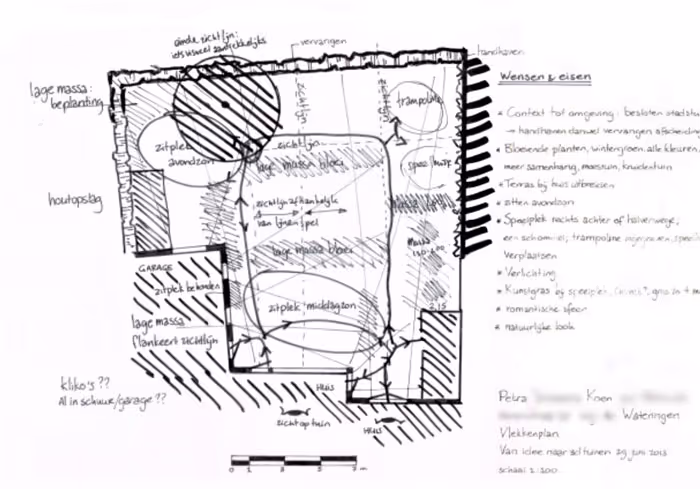 einde zichtlijn:
iets visueel aantrekkelijks
vervangen
handhaven
lage massa:
beplanting
zichtlijn
zichtlijn
trampoline
zitplek
avondzon
zichtlijn
lage massa bloei
houtopslag
zichtlijn afhankelijk
van lijnenspel
massa
lage massa bloei
GARAGE
zitplek behouden
zitplek middagzon
2,15
lage massa
flankeert zichtlijn
kliko's ??
Al in schuur/garage??
HUIS
zicht op tuin
HUIS
0 1 2 3 5 m
Wensen & eisen
* Context tot omgeving: besloten stadstu
→ handhaven danwel vervangen afscheiding
* Bloeiende planten, wintergroen, alle kleuren,
meer samenhang, moestuin, kruidentuin
* Terras bij huis uitbreiden
* zitten avondzon
* Speelplek rechts achter of halverwege,
een schommel; trampoline
verplaatsen
* Verlichting
* Kunstgras bij speelplek
* romantische sfeer
* natuurlijke look
Petra Koen
Wateringen
Vlekkenplan
Van idee naar schuinen 29 juni 2013
schaal 1:100